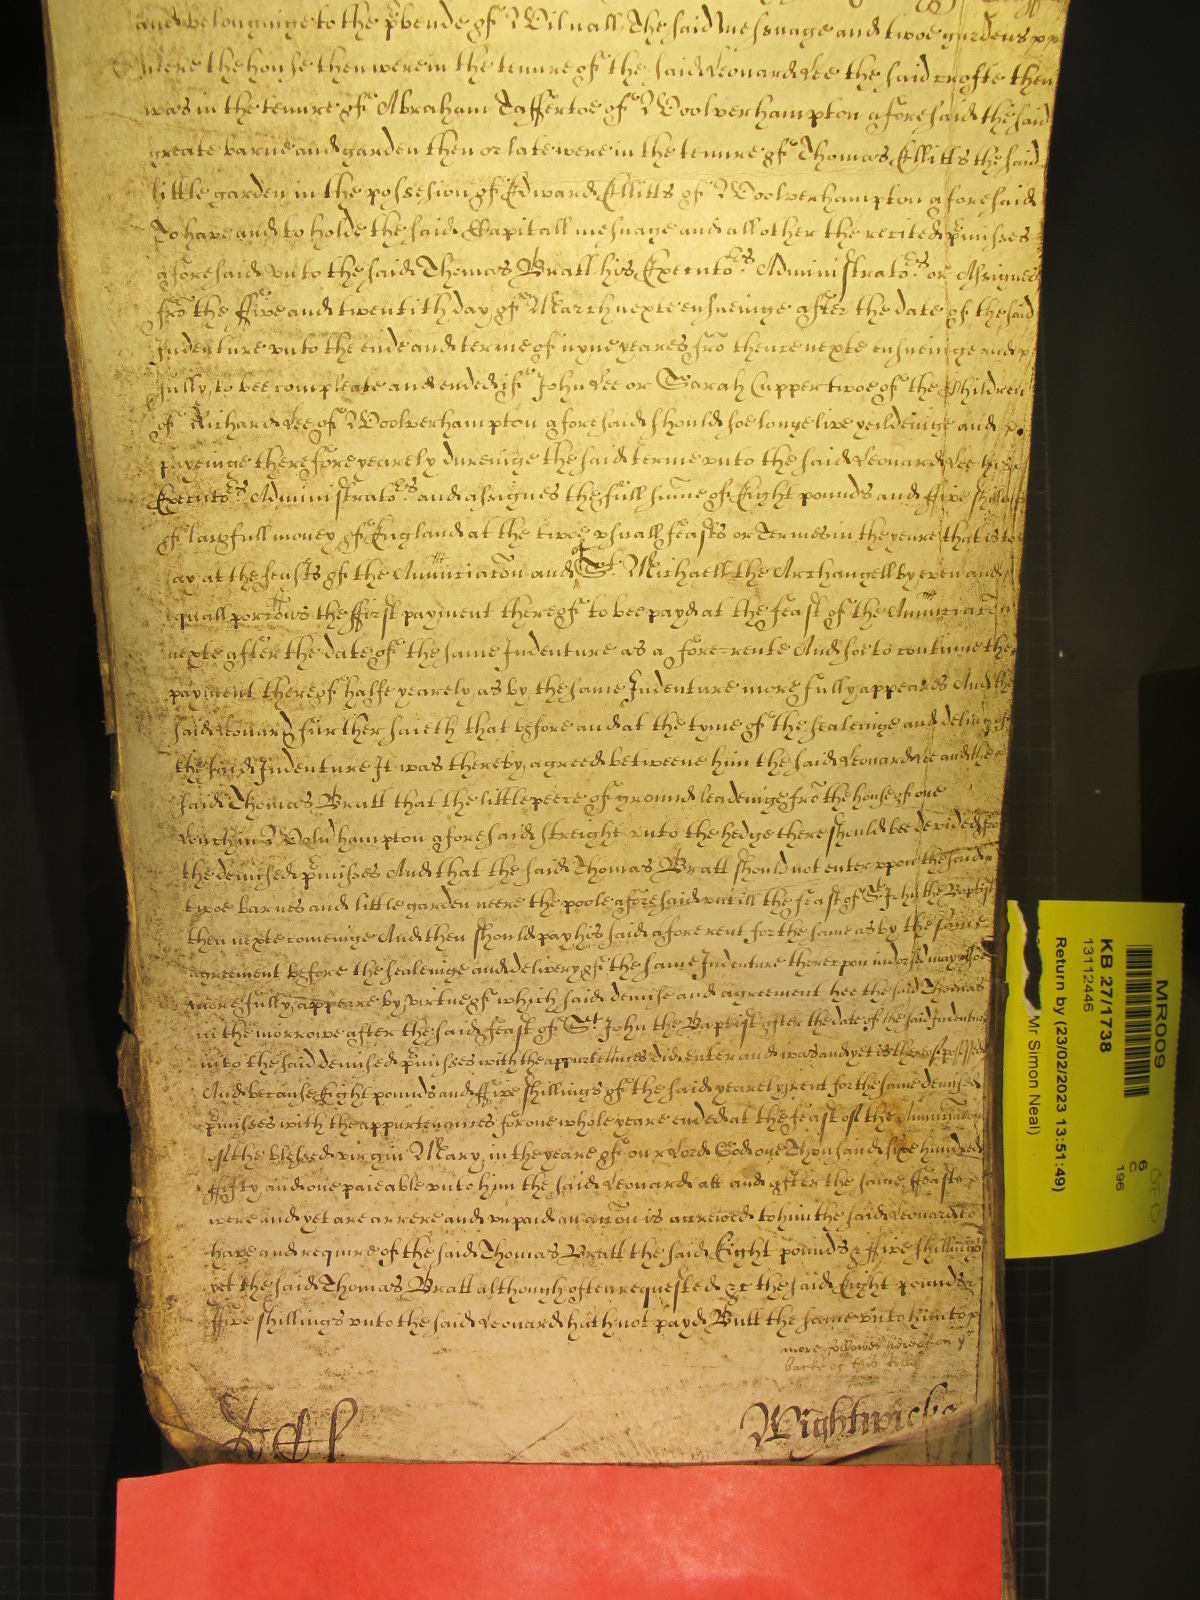 and belonginge to the p̄bende of Wilnall The said messuage and twoe gardens
neere the house then were in the tenure of the said Leonard Lee the said crofte then
was in the tenure of Abraham Taffertoe of Woolverhampton aforesaid the said
greate barne and garden then or late were in the tenure of Thomas Ellitts the said
little garden in the possession of Edward Ellitts of Woolverhampton aforesaid
To have and to holde the said Capitall mesuage and all other the recited p̄misses
aforesaid unto the said Thomas Bratt his Executo:rs Administrato:rs or Assignes
frō the ffive and twentith day of March nexte ensueinge after the date of the said
Indenture unto the ende and terme of nyne yeares frō thence nexte ensueinge and
fully to bee compleate and ended if John Lee or Sarah Cupper twoe of the Children
of Richard Lee of Woolverhampton aforesaid should soe longe live yeildeinge and
payeinge therefore yearely dureinge the said terme unto the said Leonard Lee his
Executo:rs Administrato:rs and assignes the full sume of Eight pounds and ffive shillings
of lawfull money of England at the twoe usuall feasts or Termes in the yeare that is to
say at the feasts of the Annuciatōn and of St Michaell the Archangell by even and
equall portōns the ffirst payment thereof to bee payd at the feast of the Annunciatōn
nexte after the date of the same Indenture as a fore=rente And soe to continue the
payment thereof halfe yearely as by the same Indenture more fully appeares And the
said Leonard further saieth that before and at the tyme of the sealeinge and delivery of
the said Indenture It was thereby agreed betweene him the said Leonard Lee and the
said Thomas Bratt that the little peece of ground leadeinge frō the house of one
in Wolv̄hampton aforesaid streight unto the hedge there should bee devided frō
the demised p̄misses And that the said Thomas Bratt should not enter uppon the said
twoe barnes and little garden neere the poole aforesaid untill the feast of St John the Baptist
then nexte comeinge And then should pay his said aforerent for the same as by the same
agreement before the sealeinge and delivery of the same Indenture thereupon indorsed may alsoe
more fully appeere By virtue of which said demise and agreement hee the said Thomas
in the morrowe after the said feast of St John the Baptist after the date of the said Indenture
into the said demised p̄misses with the appurtenances did enter and was and yet is thereof possessed
And because Eight pounds and ffive shillings of the said yearely rent for the same demised
p̄misses with the appurtenances for one whole yeare ended at the feast of the Annunciatōn
of the blessed virgin Mary in the yeare of our Lord God one Thousand sixe hundred
ffifty and one paieable unto him the said Leonard att and after the same ffeaste
were and yet are arrere and unpaid an actōn is accrewed to him the said Leonard to
have and require of the said Thomas Bratt the said Eight pounds & ffive shillings
yet the said Thomas Bratt although often requested &c the said Eight pounds
ffive shillings unto the said Leonard hath not payd Butt the same unto him to p
more followes hereof on ye
backe of this rolle
Wightwicke
MR009
6
C
196
KB 27/1738
13112446
Return by (23/02/2023 13:51:49)
Mr Simon Neal)